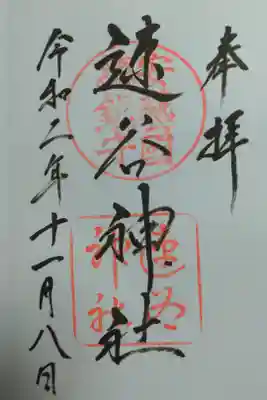 奉拝
速谷神社
速谷
神社
令和二年十一月八日